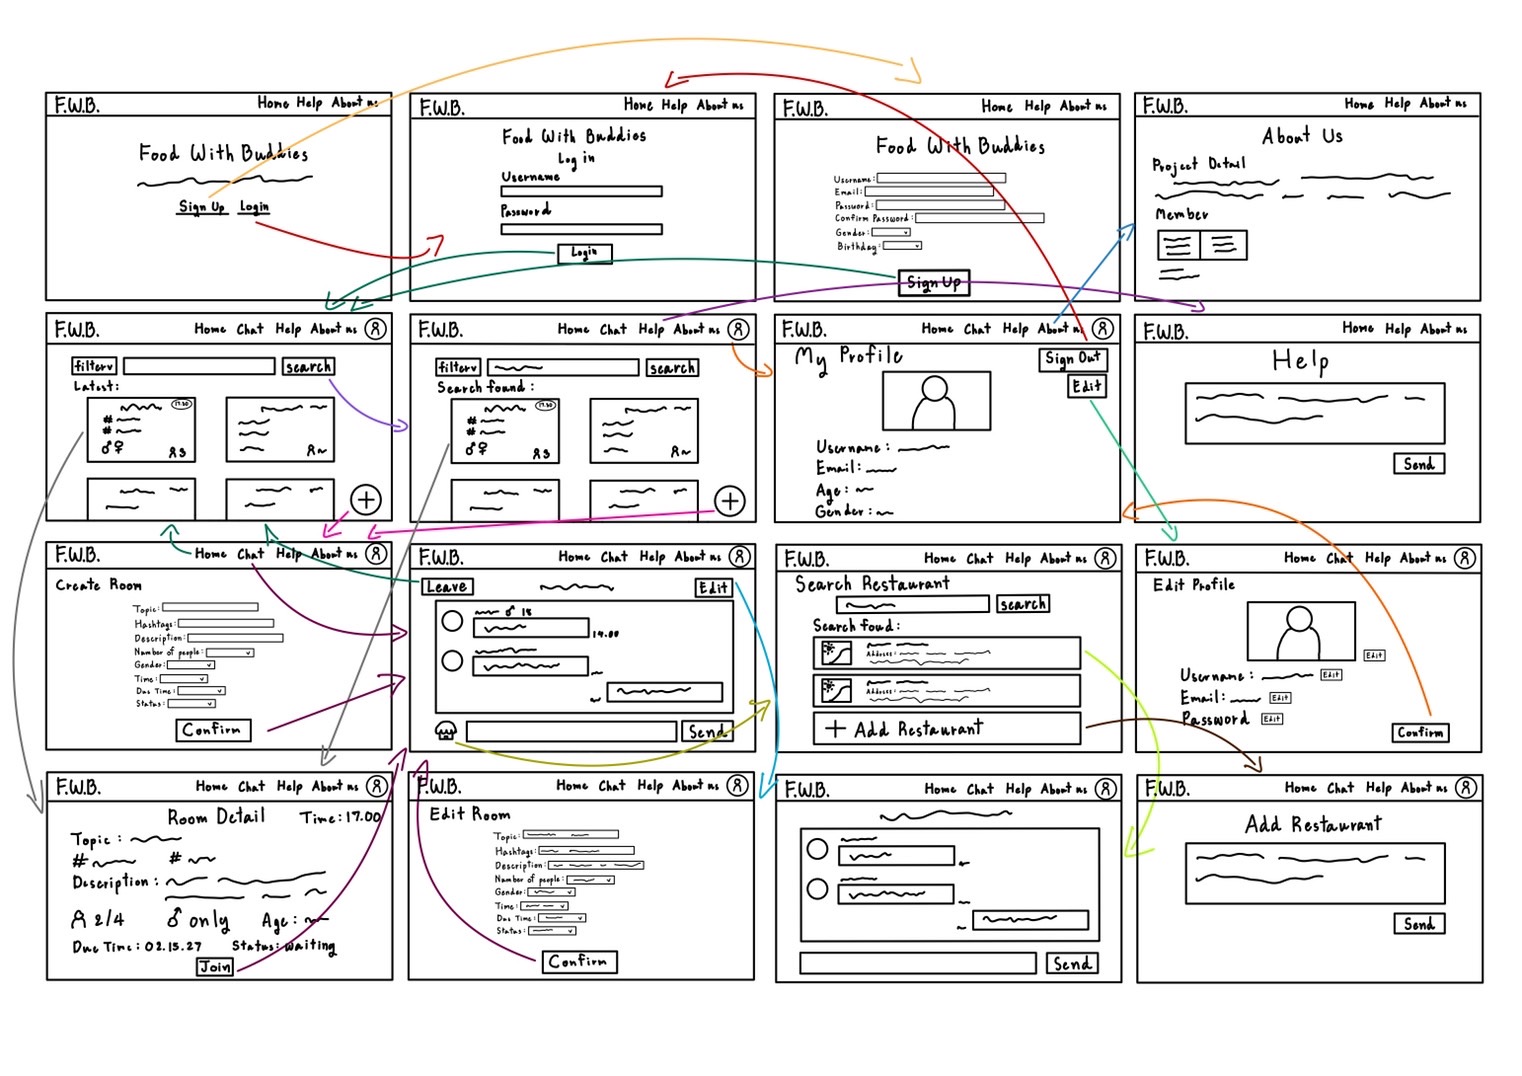 F.W.B. Home Help About us
Food With Buddies
Sign Up Login
F.W.B. Home Help About us
Food With Buddies
Log in
Username
Password
Login
F.W.B. Home Help About us
Food With Buddies
Username:
Email:
Password:
Confirm Password:
Gender: v
Birthday: v
Sign Up
F.W.B. Home Help About us
About Us
Project Detail
Member
F.W.B. Home Chat Help About us
filter v search
Latest:
17.30
#
#
♂♀ 3
F.W.B. Home Chat Help About us
filter v search
Search found:
17.30
#
#
♂♀ 3
F.W.B. Home Chat Help About us
My Profile
Sign Out
Edit
Username:
Email:
Age:
Gender:
F.W.B. Home Help About us
Help
Send
F.W.B. Home Chat Help About us
Create Room
Topic:
Hashtags:
Description:
Number of people: v
Gender: v
Time: v
Due Time: v
Status: v
Confirm
F.W.B. Home Chat Help About us
Leave Edit
♂ 18
14.00
Send
F.W.B. Home Chat Help About us
Search Restaurant
search
Search foud:
Address:
Address:
+ Add Restaurant
F.W.B. Home Chat Help About us
Edit Profile
Edit
Username: Edit
Email: Edit
Password Edit
Confirm
F.W.B. Home Chat Help About us
Room Detail Time: 17.00
Topic:
# #
Description:
2/4 ♂ only Age:
Due Time: 02.15.27 Status: waiting
Join
F.W.B. Home Chat Help About us
Edit Room
Topic:
Hashtags:
Description:
Number of people: v
Gender: v
Time: v
Due Time: v
Status: v
Confirm
F.W.B. Home Chat Help About us
Send
F.W.B. Home Chat Help About us
Add Restaurant
Send